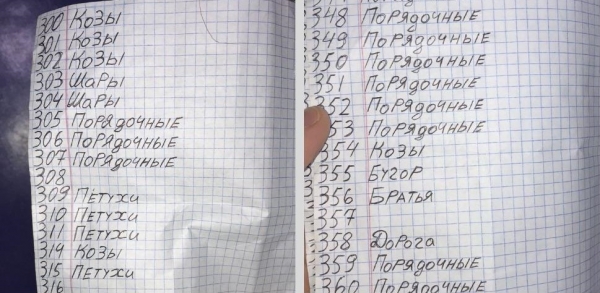 300 Козы
301 Козы
302 Козы
303 Шары
304 Шары
305 Порядочные
306 Порядочные
307 Порядочные
308
309 Петухи
310 Петухи
311 Петухи
314 Козы
315 Петухи
316
348 Порядочные
349 Порядочные
350 Порядочные
351 Порядочные
352 Порядочные
353 Порядочные
354 Козы
355 Бугор
356 Братья
357
358 Дорога
359 Порядочные
360 Порядочные